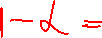 1 - α =